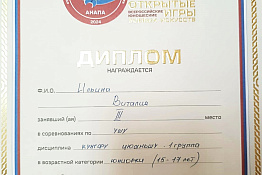 ОТКРЫТЫЕ
ВСЕРОССИЙСКИЕ ЮНОШЕСКИЕ ИГРЫ
АНАПА
2024
ДИПЛОМ
НАГРАЖДАЕТСЯ
Ф.И.О. Ильина
Виталия
занявший (ая) III место
в соревнованиях по ушу
дисциплина кунгфу цюаньшу - 1 группа
в возрастной категории юниорки (15-17 лет)